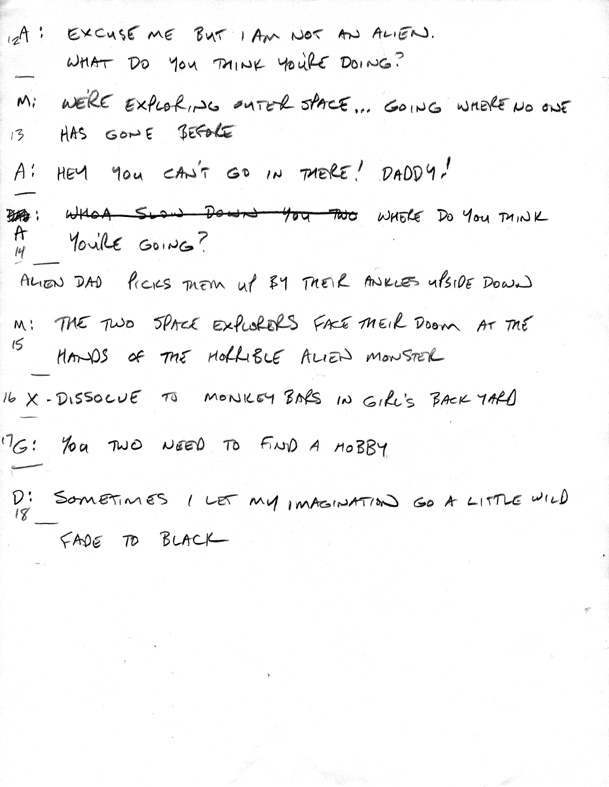 12A: EXCUSE ME BUT I AM NOT AN ALIEN.
WHAT DO YOU THINK YOU'RE DOING?
M: WE'RE EXPLORING OUTER SPACE... GOING WHERE NO ONE
13 HAS GONE BEFORE
A: HEY YOU CAN'T GO IN THERE! DADDY!
: WHOA SLOW DOWN YOU TWO WHERE DO YOU THINK
A YOU'RE GOING?
14
ALIEN DAD PICKS THEM UP BY THEIR ANKLES UPSIDE DOWN
M: THE TWO SPACE EXPLORERS FACE THEIR DOOM AT THE
15 HANDS OF THE HORRIBLE ALIEN MONSTER
16 X - DISSOLVE TO MONKEY BARS IN GIRL'S BACK YARD
17G: YOU TWO NEED TO FIND A HOBBY
D: SOMETIMES I LET MY IMAGINATION GO A LITTLE WILD
18
FADE TO BLACK